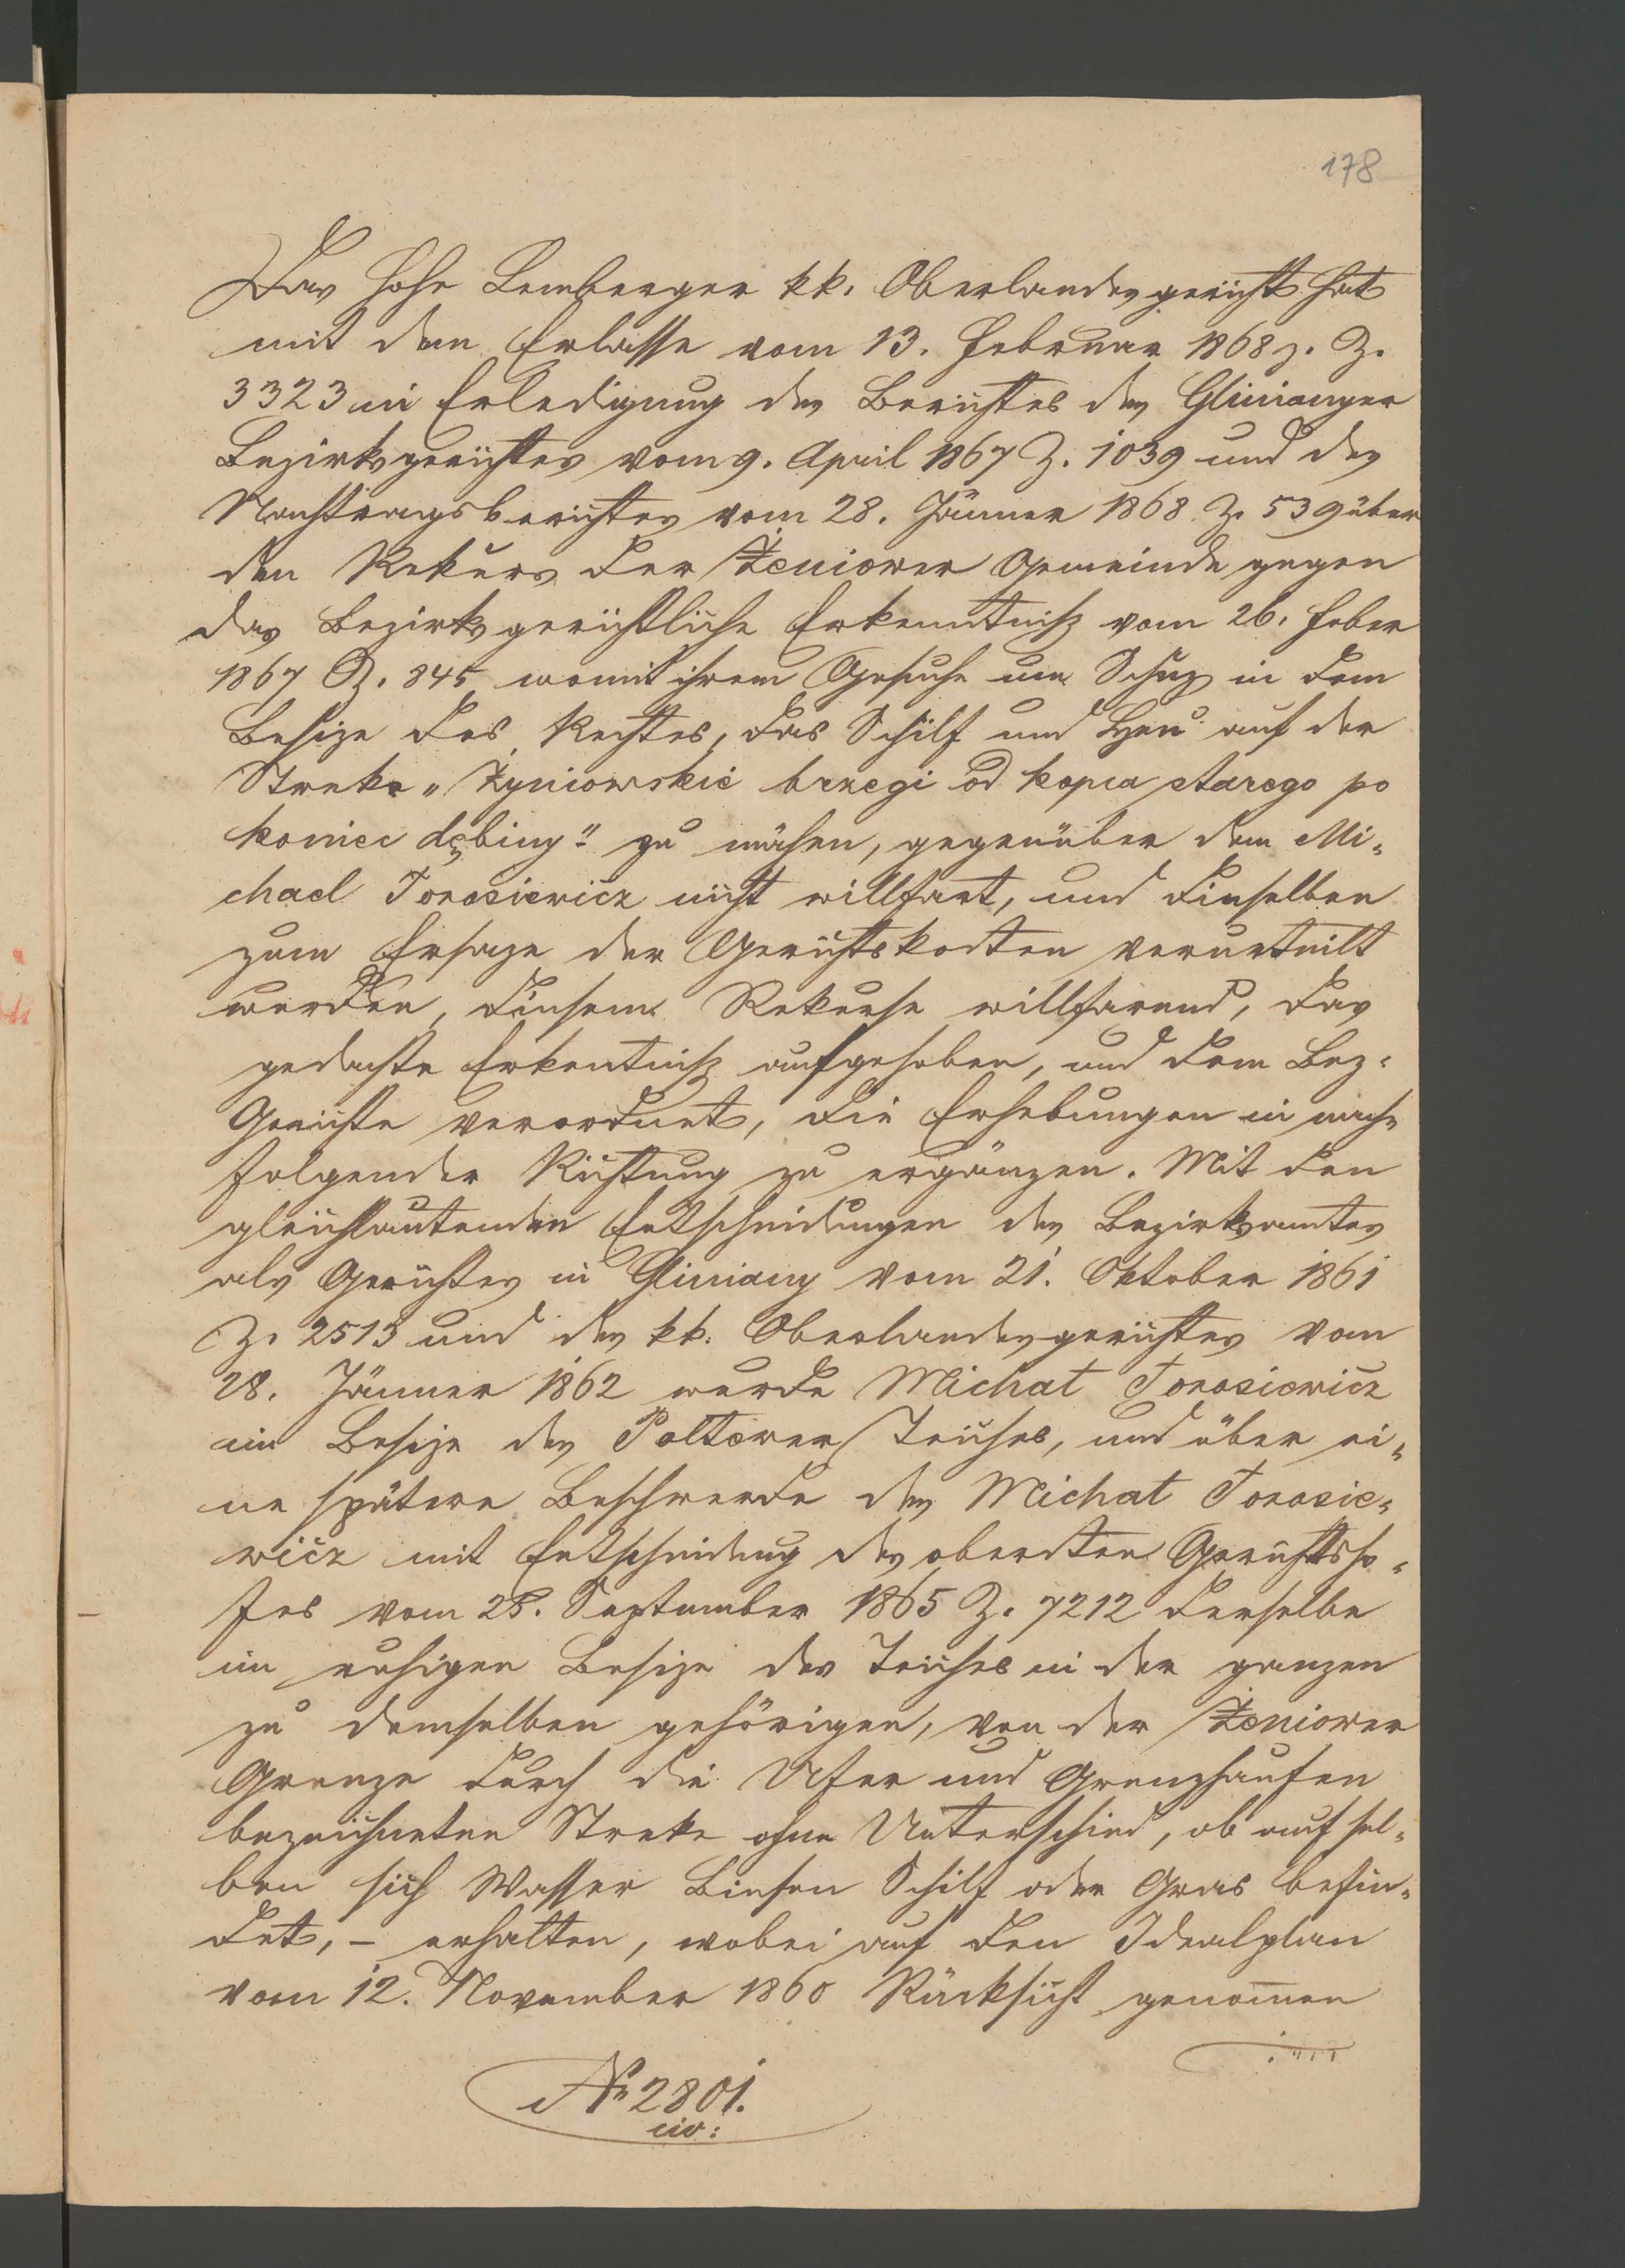 178
Das hohe Lemberger kk. Oberlandesgericht hat
mit dem Erlasse vom 13. Februar 1868 z. Z.
3323 in Erledigung des Berichtes des Glinianyer
Bezirksgerichtes vom 9. April 1867 Z. 1039 und des
Nachtragsberichtes vom 28. Jänner 1868 Z. 539 über
den Rekurs der Żeniower Gemeinde gegen
das Bezirksgerichtliche Erkenntniß vom 26. Feber
1867 Z. 845 womit ihrem Gesuche um Schuz in dem
Besize des Rechtes, das Schilf und Heu auf der
Streke „Żyniowskie brzegi od kopca starego po
koniec dębiny" zu mähen, gegenüber dem Mi-
chael Torosiewicz nicht willfart, und dieselben
zum Ersaze der Gerichtskosten verurteilt
wurden, diesem Rekurse willfarend, das
gedachte Erkentniß aufgehoben, und dem Bez-
Gerichte verordnet, die Erhebungen in nach-
folgender Richtung zu ergänzen. Mit den
gleichlautenden Entscheidungen des Bezirksamtes
als Gerichtes in Gliniany vom 21. Oktober 1861
Z. 2513 und des kk. Oberlandesgerichtes vom
28. Jänner 1862 wurde Michał Torosiewicz
im Besize des Poltower Teiches, und über ei-
ne spätere Beschwerde des Michał Torosie-
wicz mit Entscheidung des obersten Gerichtsho-
fes vom 28. September 1865 Z. 7212 derselbe
im ruhigen Besize des Teiches in der ganzen
zu demselben gehörigen, von der Żeniower
Grenze durch die Ufer und Grenzhaufen
bezeichneten Streke ohne Unterschied, ob auf sel-
ben sich Wasser Binsen Schilf oder Gras befin-
det, – erhalten, wobei auf den Idealplan
vom 12. November 1860 Rücksicht genommen
№ 2801.
civ: